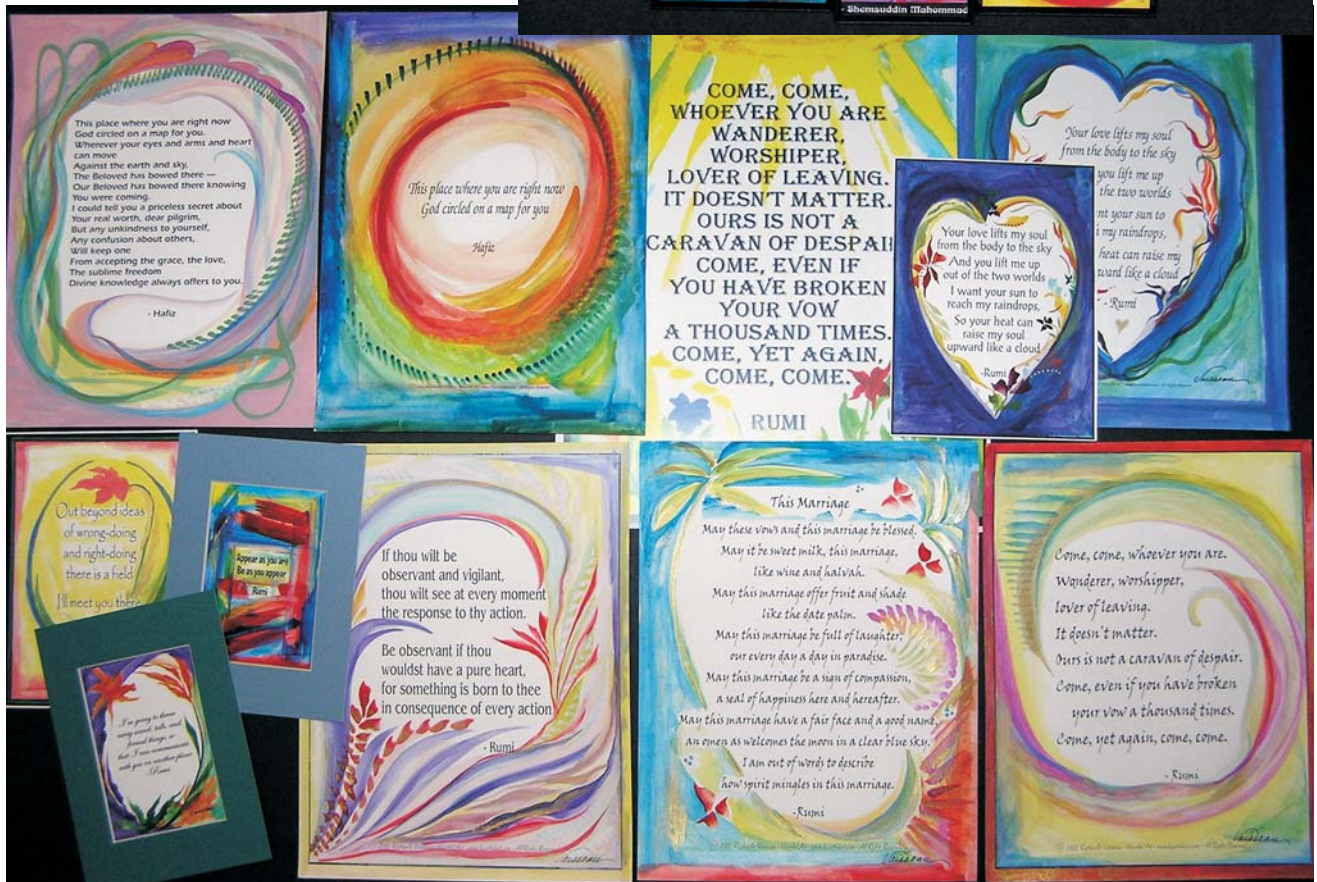 - Shemsuddin Mahommad
This place where you are right now
God circled on a map for you.
Wherever your eyes and arms and heart
can move
Against the earth and sky,
The Beloved has bowed there —
Our Beloved has bowed there knowing
You were coming.
I could tell you a priceless secret about
Your real worth, dear pilgrim,
But any unkindness to yourself,
Any confusion about others,
Will keep one
From accepting the grace, the love,
The sublime freedom
Divine knowledge always offers to you.
- Hafiz
This place where you are right now
God circled on a map for you
Hafiz
COME, COME,
WHOEVER YOU ARE
WANDERER,
WORSHIPER,
LOVER OF LEAVING.
IT DOESN'T MATTER.
OURS IS NOT A
CARAVAN OF DESPAI
COME, EVEN IF
YOU HAVE BROKEN
YOUR VOW
A THOUSAND TIMES.
COME, YET AGAIN,
COME, COME.
RUMI
Your love lifts my soul
from the body to the sky
And you lift me up
out of the two worlds
I want your sun to
reach my raindrops,
So your heat can
raise my soul
upward like a cloud
-Rumi
Your love lifts my soul
from the body to the sky
you lift me up
the two worlds
nt your sun to
my raindrops,
heat can raise my
ward like a cloud
- Rumi
Out beyond ideas
of wrong-doing
and right-doing
there is a field
I'll meet you there
Appear as you are
Be as you appear
Rumi
that I can communicate
with you on another plane
-Rumi
If thou wilt be
observant and vigilant,
thou wilt see at every moment
the response to thy action.
Be observant if thou
wouldst have a pure heart,
for something is born to thee
in consequence of every action
- Rumi
This Marriage
May these vows and this marriage be blessed.
May it be sweet milk, this marriage,
like wine and halvah.
May this marriage offer fruit and shade
like the date palm.
May this marriage be full of laughter,
our every day a day in paradise.
May this marriage be a sign of compassion,
a seal of happiness here and hereafter.
May this marriage have a fair face and a good name,
an omen as welcomes the moon in a clear blue sky.
I am out of words to describe
how spirit mingles in this marriage.
-Rumi
Come, come, whoever you are.
Wonderer, worshipper,
lover of leaving.
It doesn't matter.
Ours is not a caravan of despair.
Come, even if you have broken
your vow a thousand times.
Come, yet again, come, come.
- Rumi